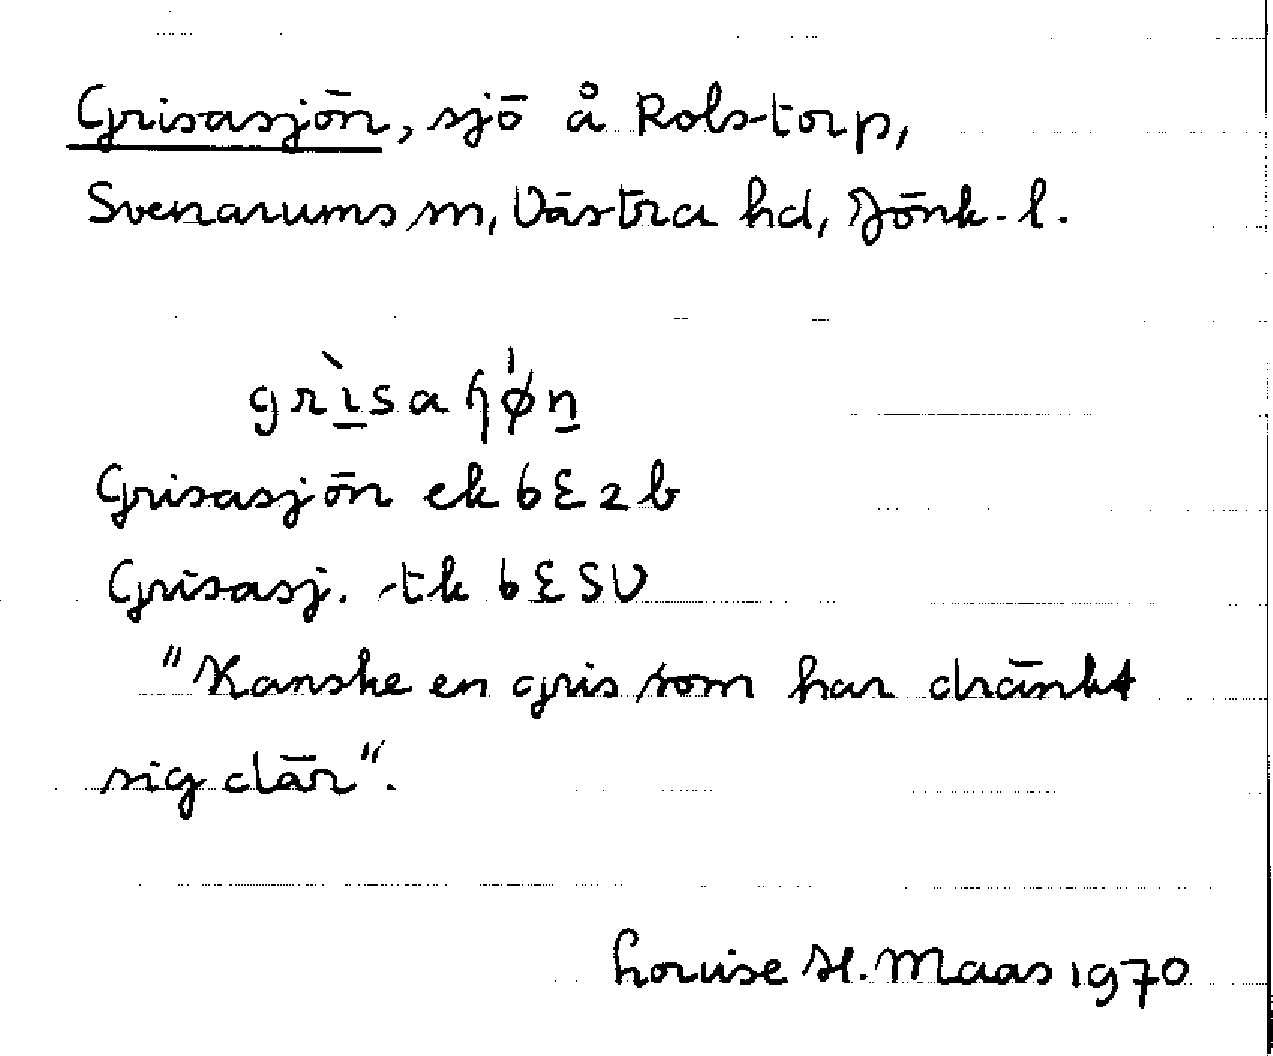 Grisasjön, sjö å Rolstorp,
Svenarums sn, Västra hd, Jönk. l.
grìsaɧø̍n
Grisasjön ek 6E2b
Grisasj. tk 6ESV
"Kanske en gris som har dränkt
sig där".
Louise H. Maas 1970